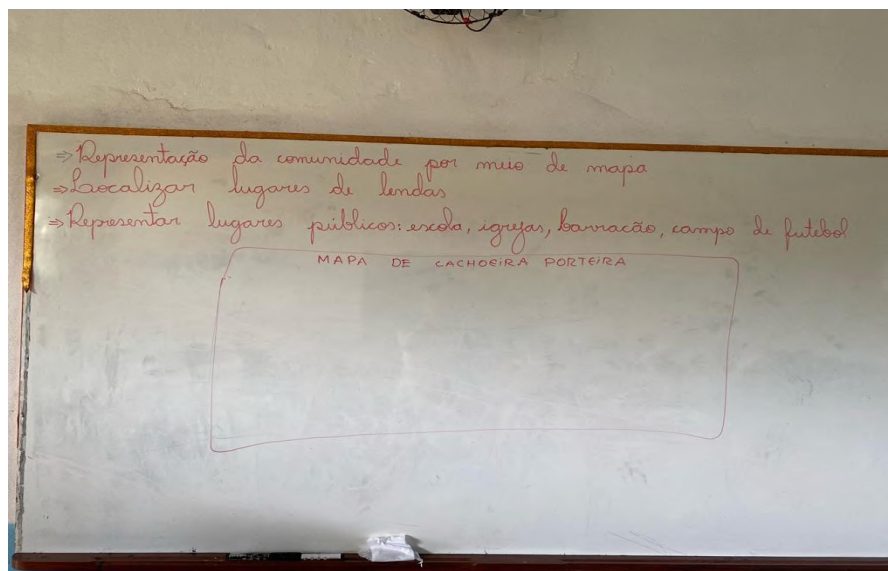 ⇒ Representação da comunidade por meio de mapa
⇒ Localizar lugares de lendas
⇒ Representar lugares públicos: escola, igrejas, barracão, campo de futebol
MAPA DE CACHOEIRA PORTEIRA